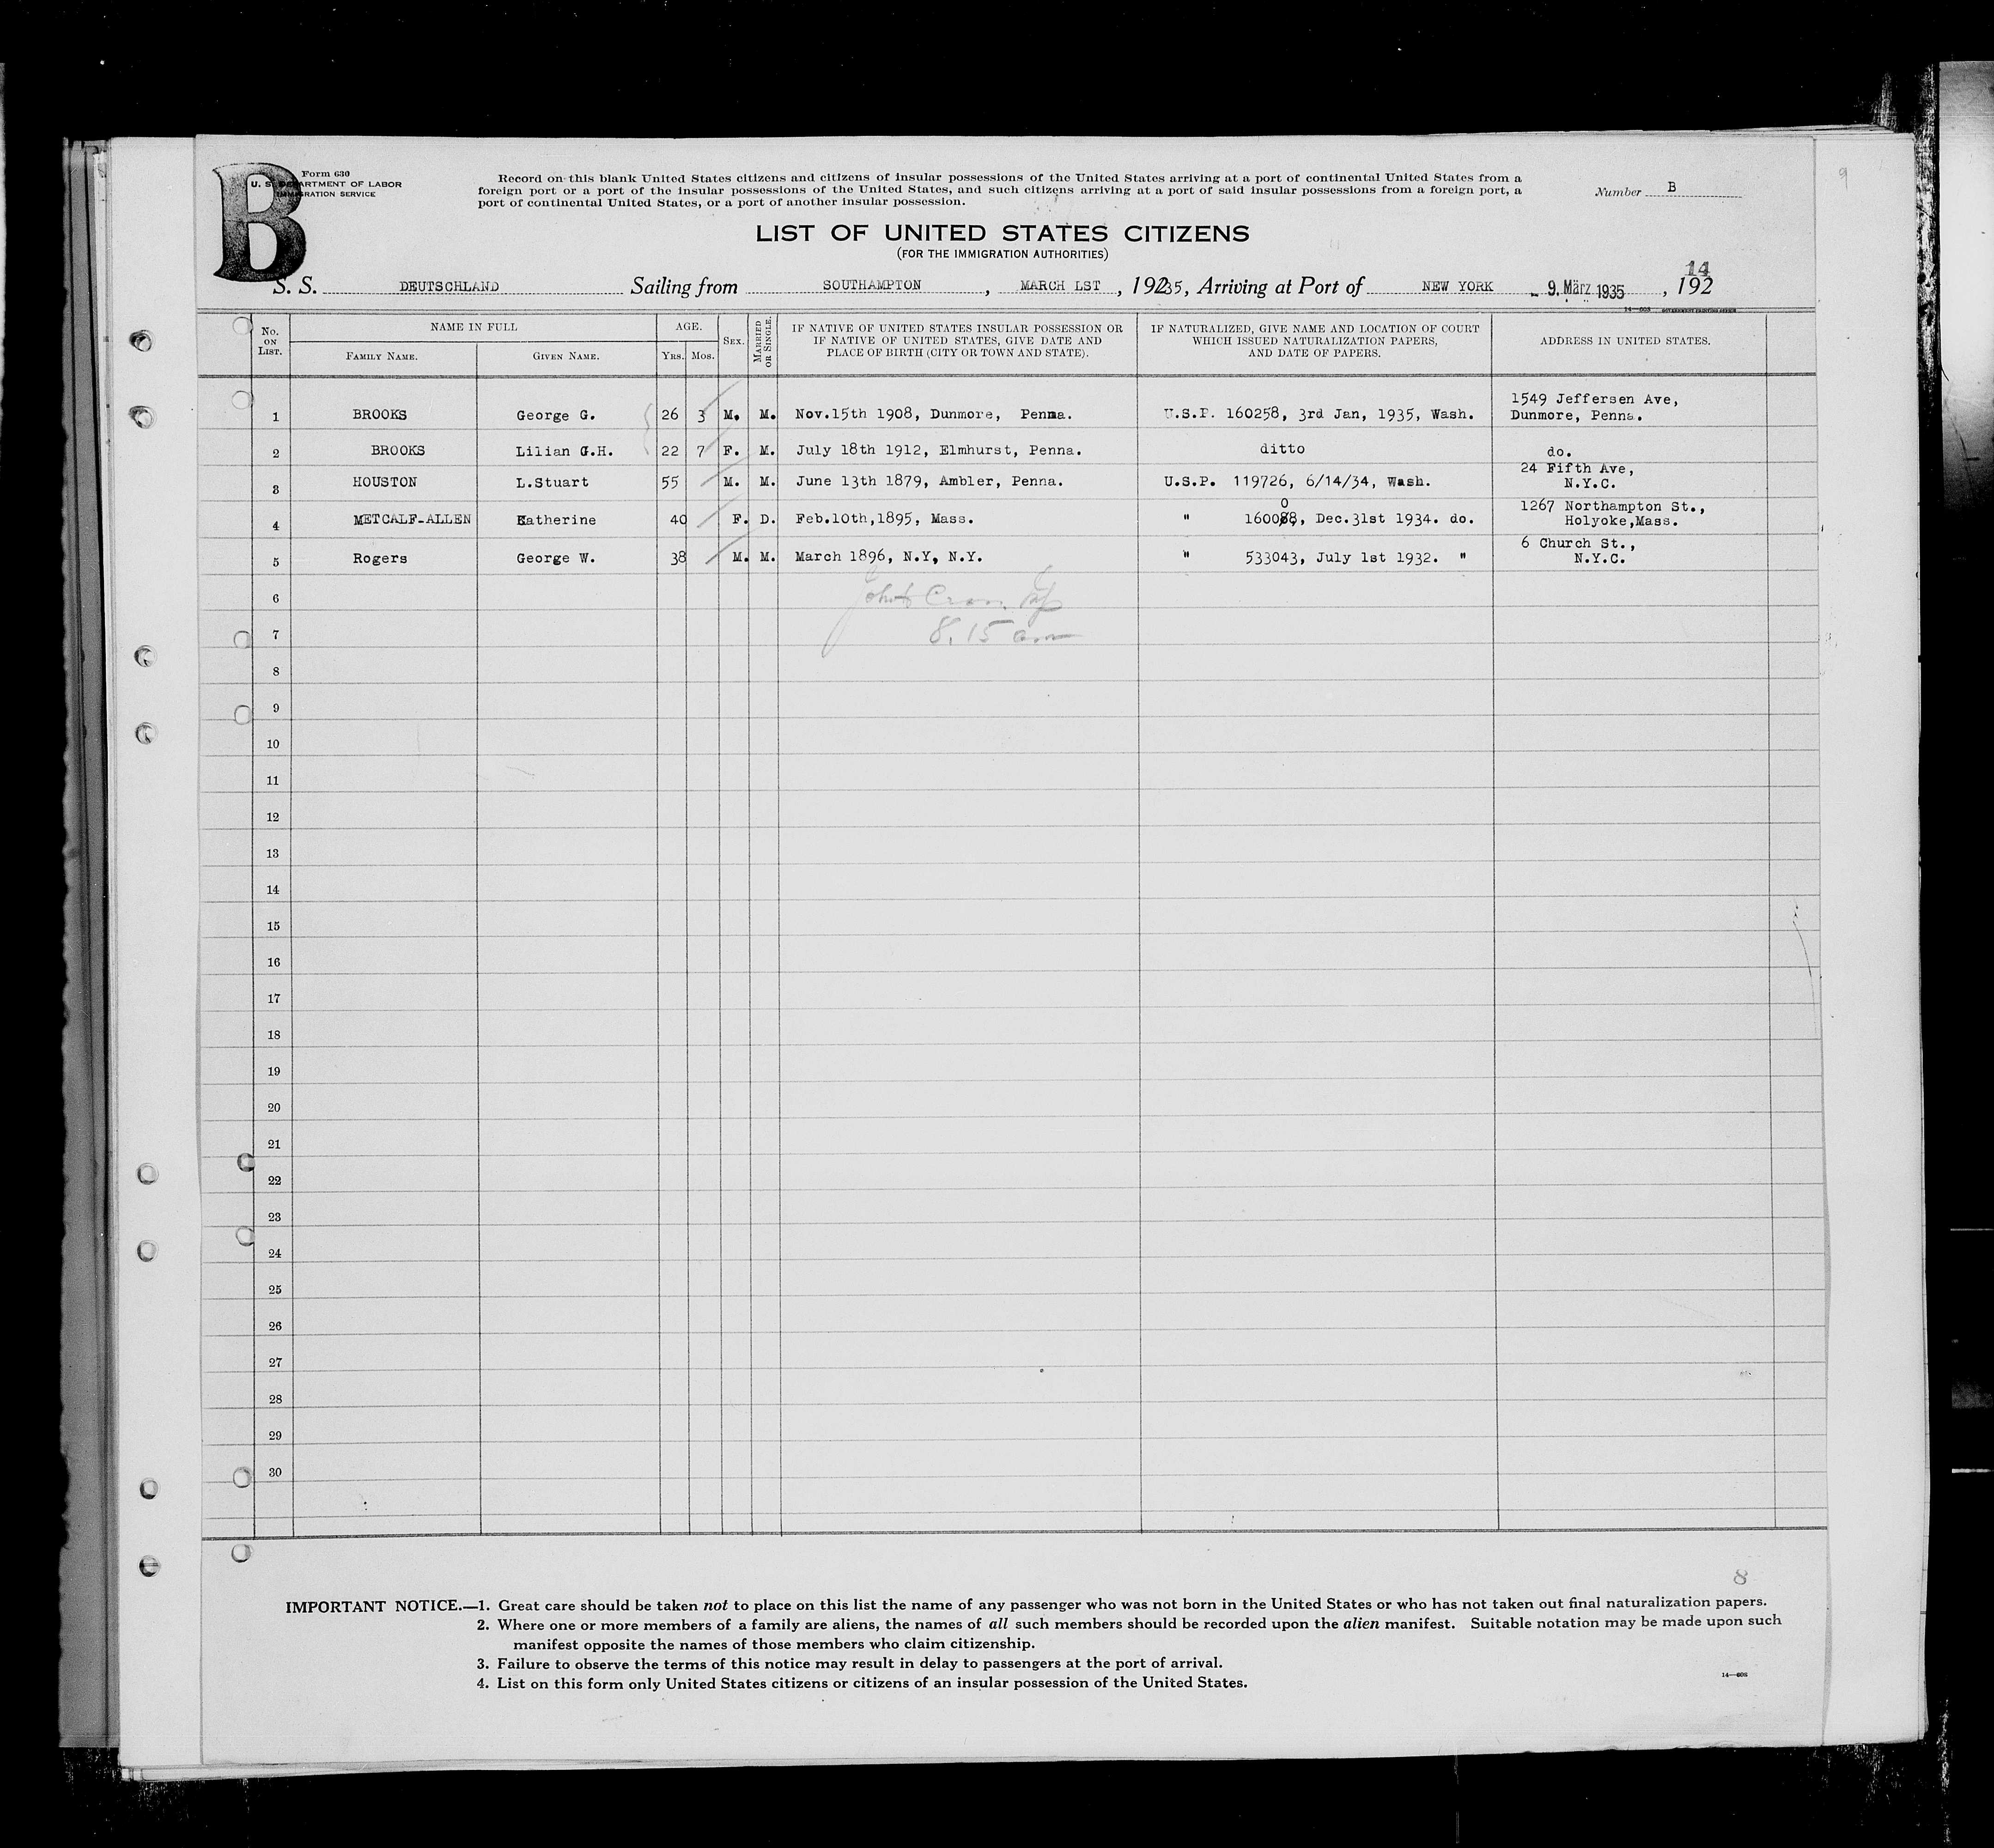 B
Form 630
U. S. DEPARTMENT OF LABOR
IMMIGRATION SERVICE
Record on this blank United States citizens and citizens of insular possessions of the United States arriving at a port of continental United States from a
foreign port or a port of the insular possessions of the United States, and such citizens arriving at a port of said insular possessions from a foreign port, a
port of continental United States, or a port of another insular possession.
Number B
9
LIST OF UNITED STATES CITIZENS
(FOR THE IMMIGRATION AUTHORITIES)
14
S. S. DEUTSCHLAND Sailing from SOUTHAMPTON, MARCH LST, 19235, Arriving at Port of NEW YORK - 9. März 1935, 192
No. ON LIST. NAME IN FULL AGE. SEX. MARRIED OR SINGLE. IF NATIVE OF UNITED STATES INSULAR POSSESSION OR IF NATIVE OF UNITED STATES, GIVE DATE AND PLACE OF BIRTH (CITY OR TOWN AND STATE). IF NATURALIZED, GIVE NAME AND LOCATION OF COURT WHICH ISSUED NATURALIZATION PAPERS, AND DATE OF PAPERS. ADDRESS IN UNITED STATES.
FAMILY NAME. GIVEN NAME. YRS. MOS.
1 BROOKS George G. 26 3 M. M. Nov.15th 1908, Dunmore, Penna. U.S.P. 160258, 3rd Jan, 1935, Wash. 1549 Jeffersen Ave, Dunmore, Penna.
2 BROOKS Lilian G.H. 22 7 F. M. July 18th 1912, Elmhurst, Penna. ditto do.
3 HOUSTON L.Stuart 55 M. M. June 13th 1879, Ambler, Penna. U.S.P. 119726, 6/14/34, Wash. 24 Fifth Ave, N.Y.C.
0
4 METCALF-ALLEN Katherine 40 F. D. Feb.10th,1895, Mass. " 160088, Dec.31st 1934. do. 1267 Northampton St., Holyoke,Mass.
5 Rogers George W. 38 M. M. March 1896, N.Y, N.Y. " 533043, July 1st 1932. " 6 Church St., N.Y.C.
6
7 8.15 am
8
9
10
11
12
13
14
15
16
17
18
19
20
21
22
23
24
25
26
27
28
29
30
8
IMPORTANT NOTICE.—1. Great care should be taken not to place on this list the name of any passenger who was not born in the United States or who has not taken out final naturalization papers.
2. Where one or more members of a family are aliens, the names of all such members should be recorded upon the alien manifest. Suitable notation may be made upon such
manifest opposite the names of those members who claim citizenship.
3. Failure to observe the terms of this notice may result in delay to passengers at the port of arrival.
4. List on this form only United States citizens or citizens of an insular possession of the United States.